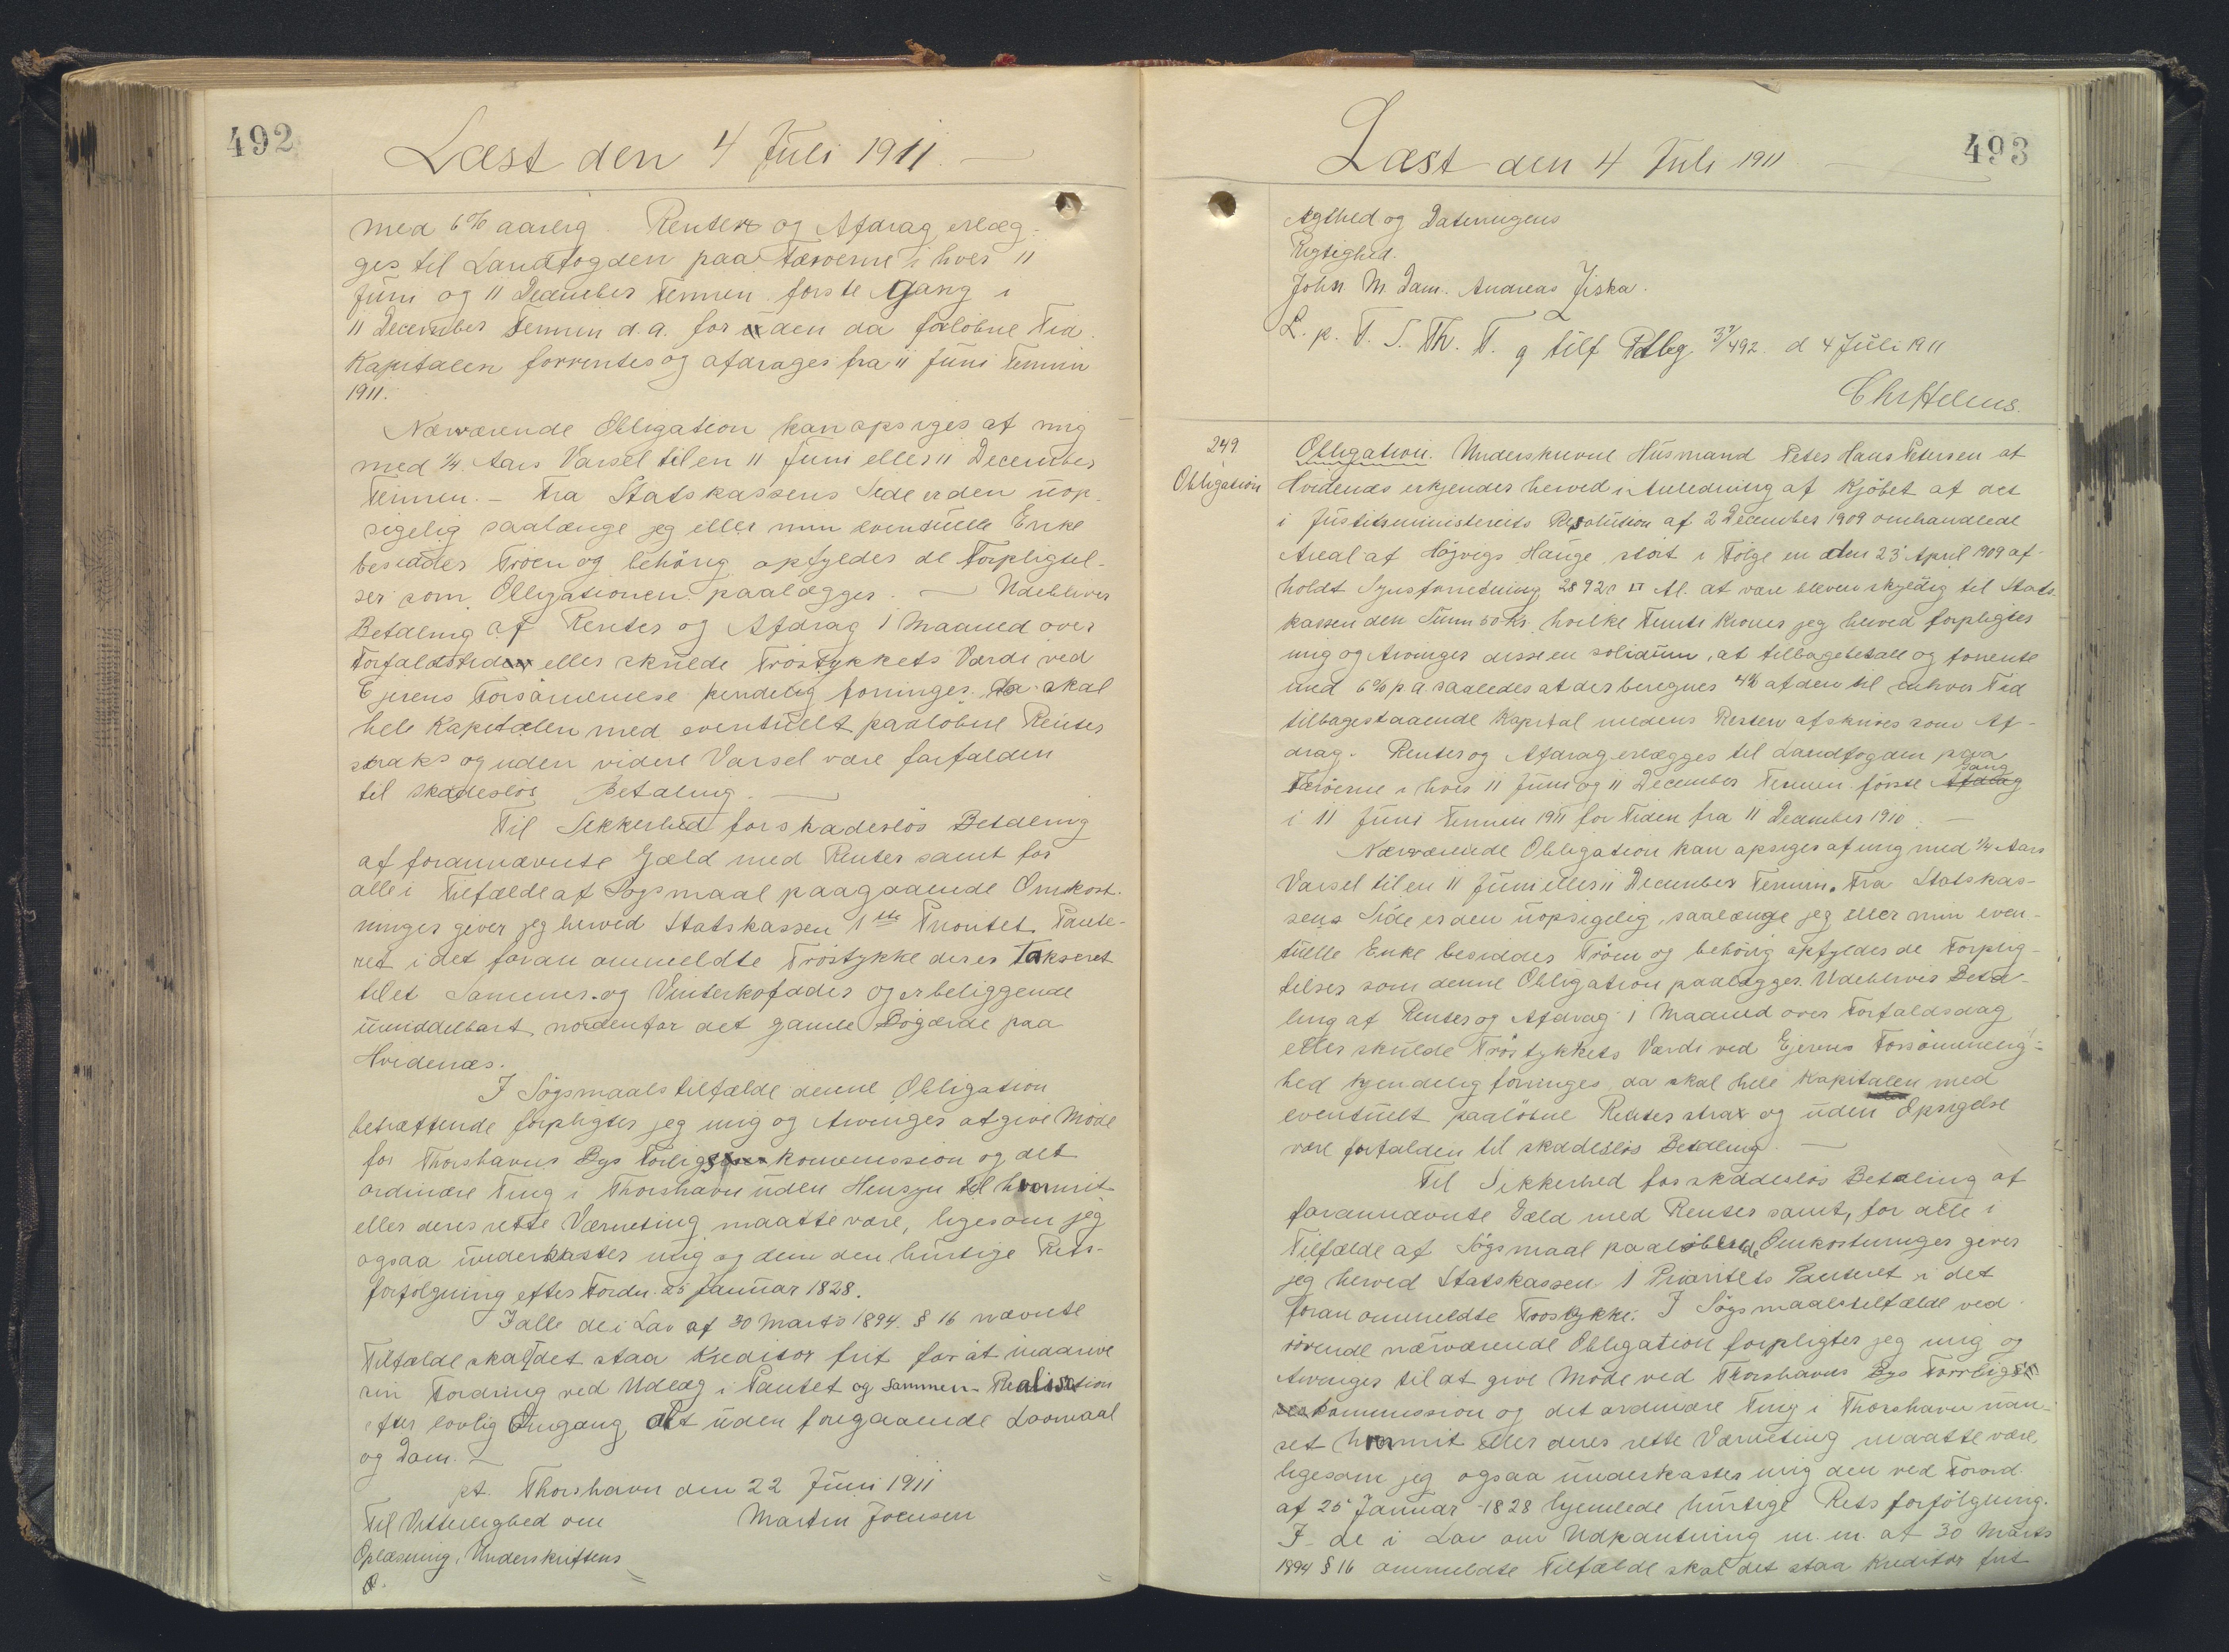 492
Læst den 4 Juli 1911.
med 6% aarlig. Renter og Afdrag erlæg-
ges til Landfogden paa Færøerne i hver 11
Juni og 11 December Termin første Gang i
11 December Termin d. a. for den da forløbne Tid.
Kapitalen forrentes og afdrages fra 11 Juni Termin
1911.
Nærværende Obligation kan opsiges af mig
med ¼ Aars Varsel til en 11 Juni eller 11 December
Termin. – Fra Statskassens Side er den uop-
sigelig saalænge jeg eller min eventuelle Enke
besidder Trøen og behørig opfylder de Forpligtel-
ser som Obligationen paalægger. — Udebliver
Betaling af Renter og Afdrag 1 Maaned over
Forfaldstid eller skulde Trøstykkets Værdi ved
Ejerens Forsømmelse kendelig forringes da skal
hele Kapitalen med eventuelt paaløbne Renter
straks og uden videre Varsel være forfalden
til skadesløs Betaling. —
Til Sikkerhed for skadesløs Betaling
af forannævnte Gæld med Renter samt for
alle i Tilfælde af Søgsmaal paagaaende Omkost-
ninger giver jeg herved Statskassen 1ste Prioritet Pante-
ret i det foran ommeldte Trøstykke der er Takseret
til et Sommer- og Vinterkofoder og er beliggende
umiddelbart nordenfor det gamle Bøgærde paa
Hvidenæs.
I Søgsmaalstilfælde denne Obligation
betræffende forpligter jeg mig og Arvinger at give Møde
for Thorshavns Bys Forligskommission og det
ordinære Ting i Thorshavn uden Hensyn til hvor mit
eller deres rette Værneting maatte være, ligesom jeg
ogsaa underkaster mig og dem den hurtige Rets-
forfølgning efter Fordn. 25 Januar 1828.
I alle de i Lov af 30 Marts 1894 § 16 nævnte
Tilfælde skal det staa Kreditor frit for at inddrive
sin Fordring ved Udlæg i Pantet og sammen- Realisation
efter lovlig Omgang, alt uden foregaaende Lovmaal
og Dom. —
pt. Thorshavn den 22 Juni 1911
Til Vitterlighed om Martin Joensen
Oplæsning, Underskriftens
493
Læst den 4 Juli 1911
Ægthed og Dateringens
Rigtighed.
John M. Dam. Andreas Ziska.
L. p. T. S. Th. T. g tilf Pbtleg. 37/492. d 4 Juli 1911
Chr Helms.
249
Obligation
Obligation. Underskrevne Husmand Peter Hans Petersen af
Hvidenæs erkjender herved i Anledning af Kjøbet af det
i Justitsministeriets Resolution af 2 December 1909 omhandlede
Areal af Højvigs Hauge, stort i Følge en den 23 April 1909 af-
holdt Synsforretning 28920 □ Al. at være bleven skyldig til Stats-
kassen den Sum 50 Kr. hvilke Femti Kroner jeg herved forpligter
mig og Arvinger disse en solidum, at tilbagebetale og forrente
med 6% p a saaledes at der beregnes 4% af den til enhver Tid
tilbagestaaende Kapital medens Resten afskrives som Af-
drag. Renter og Afdrag erlægges til Landfogden paa
Færøerne i hver 11 Juni og 11 December Termin første Afdrag Gang
i 11 Juni Termin 1911 for Tiden fra 11 December 1910. —
Nærværende Obligation kan opsiges af mig med ¼ Aars
Varsel til en 11 Juni eller 11 December Termin. Fra Statskas-
sens Side er den uopsigelig, saalænge jeg eller min even-
tuelle Enke besidder Trøen og behørig opfylder de Forplig-
telser som denne Obligation paalægger. Udeblives Beta-
ling af Renter og Afdrag 1 Maaned over Forfaldsdag
eller skulde Trøstykkets Værdi ved Ejerens Forsømmelig-
hed kjendelig forringes, da skal hele Kapitalen med
eventuelt paaløbne Renter strax og uden Opsigelse
være forfalden til skadesløs Betaling. —
Til Sikkerhed for skadesløs Betaling af
forannævnte Gæld med Renter samt, for alle i
Tilfælde af Søgsmaal paaløbende Omkostninger giver
jeg herved Statskassen 1 Prioritets Panteret i det
foran ommeldte Trøstykke. I Søgsmaalstilfælde ved-
rørende nærværende Obligation forpligter jeg mig og
Arvinger til at give Møde ved Thorshavns Bys Forligs-
kommission og det ordinære Ting i Thorshavn uan-
set hvor mit eller deres rette Værneting maatte være,
ligesom jeg ogsaa underkaster mig den ved Forord.
af 25 Januar 1828 hjemlede hurtige Retsforfølgning.
I de i Lov om Udpantning m. m. af 30 Marts
1894 § 16 ommeldte Tilfælde skal det staa Kreditor frit